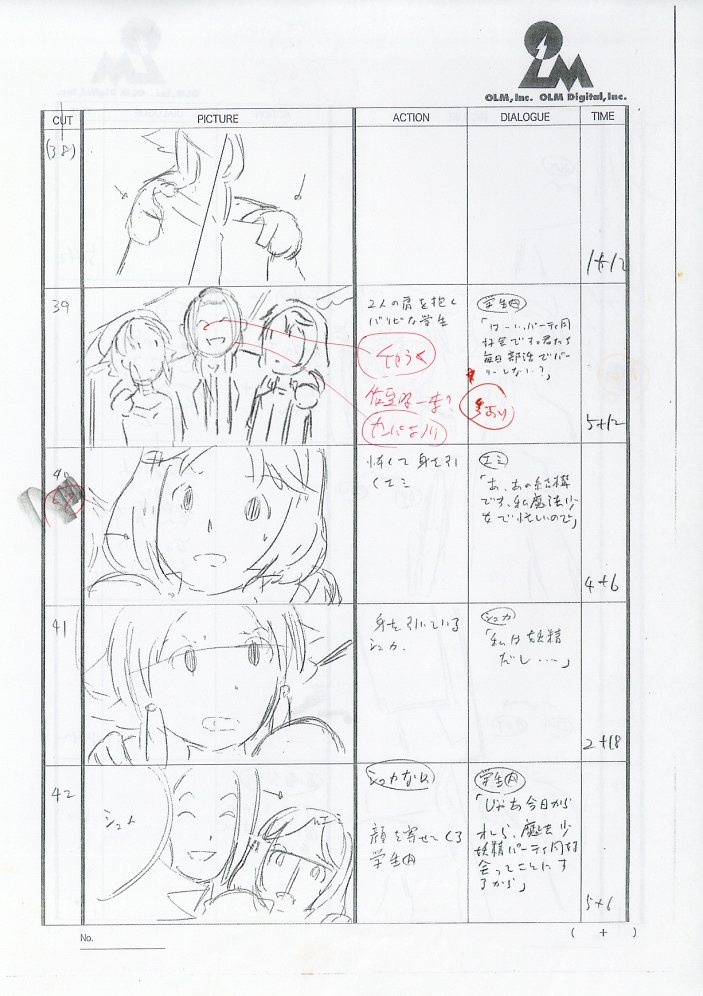 OLM, Inc. OLM Digital, Inc.
CUT PICTURE ACTION DIALOGUE TIME
(38)
1+12
39
2人の肩を抱く
パリピな学生
学生Ⓐ
毎日部活でパー
リーしない?」
5+12
40
怖くて身を引
くエミ
エミ
「あ、あの結構
です、私魔法少
女で忙しいので」
4+6
41
身を引いている
シュカ.
シュカ
「私は妖精
だし・・・」
2+18
42
シュカ
シュカなめ
顔を寄せてくる
学生Ⓐ
学生Ⓐ
「じゃあ今日から
オレら、魔法少
妖精パーティ同好
会ってことにす
るから」
5+6
No.
( + )